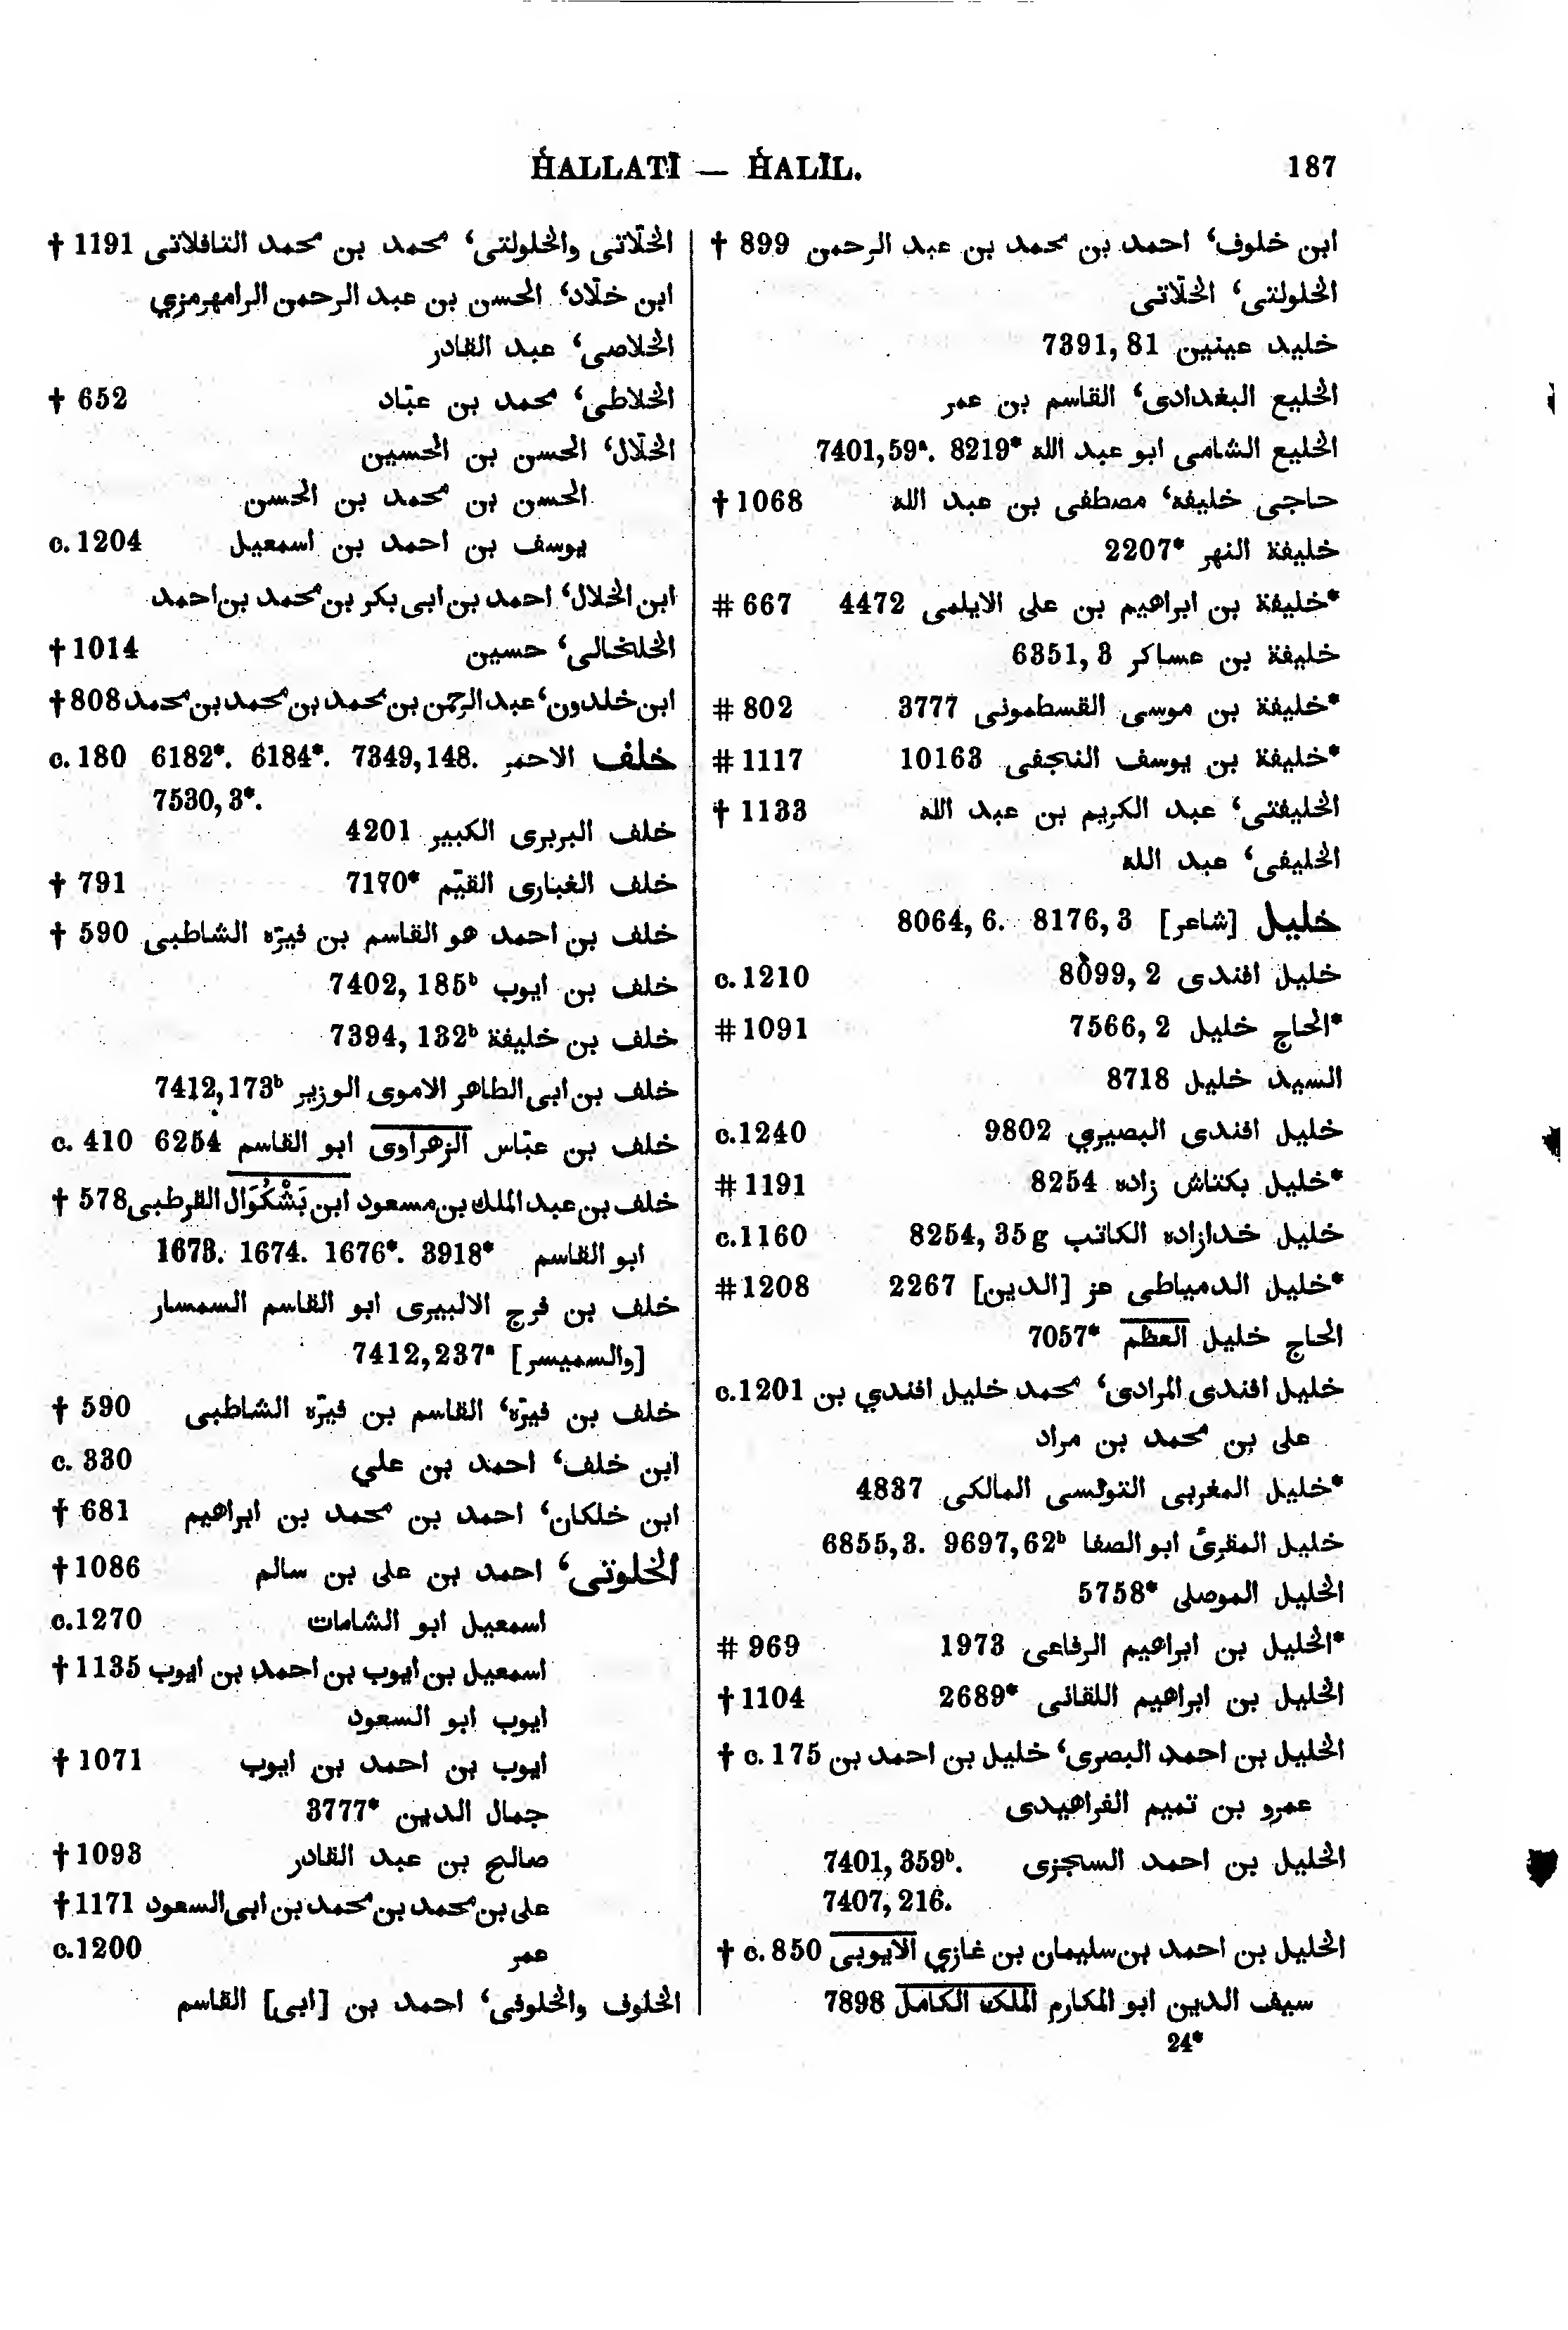 ḢALLATĪ — ḢALĪL. 187
الخلّاتى والخلولتى، محمد بن محمد التافلاتى 1191 †
ابن خلّاد، الحسن بن عبد الرحمن الرامهرمزي
الخلاصى، عبد القادر
الخلاطى، محمد بن عبّاد 652 †
الخلّال، الحسن بن الحسين
الحسن بن محمد بن الحسن
يوسف بن احمد بن اسمعيل c. 1204
ابن الخلال، احمد بن ابى بكر بن محمد بن احمد
الخلخالى، حسين 1014 †
ابن خلدون، عبد الرحمن بن محمد بن محمد بن محمد 808 †
خلف الاحمر c. 180 6182*. 6184*. 7349,148.
7530, 3*.
خلف البربرى الكبير 4201
خلف الغبارى القيّم 7170* 791 †
خلف بن احمد هو القاسم بن فيرّه الشاطبى 590 †
خلف بن ايوب 7402, 185ᵇ
خلف بن خليفة 7394, 132ᵇ
خلف بن ابى الطاهر الاموى الوزير 7412,173ᵇ
خلف بن عبّاس الزهراوى ابو القاسم 6254 c. 410
خلف بن عبد الملك بن مسعود ابن بَشْكُوَال القرطبى 578 †
ابو القاسم 1673. 1674. 1676*. 3918*
خلف بن فرج الالبيرى ابو القاسم السمسار
[والسميسر] 7412,237ᵃ
خلف بن فيرّه، القاسم بن فيرّه الشاطبى 590 †
ابن خلف، احمد بن علي c. 330
ابن خلكان، احمد بن محمد بن ابراهيم 681 †
الخلوتى، احمد بن على بن سالم 1086 †
اسمعيل ابو الشامات c.1270
اسمعيل بن ايوب بن احمد بن ايوب 1135 †
ايوب ابو السعود
ايوب بن احمد بن ايوب 1071 †
جمال الدين 3777*
صالح بن عبد القادر 1093 †
على بن محمد بن محمد بن ابى السعود 1171 †
عمر c.1200
الخلوف والخلوفى، احمد بن [ابى] القاسم
ابن خلوف، احمد بن محمد بن عبد الرحمن 899 †
الخلولتى، الخلّاتى
خليد عينين 7391, 81
الخليع البغدادى، القاسم بن عمر
الخليع الشامى ابو عبد الله 7401,59ᵃ. 8219*
حاجى خليفه، مصطفى بن عبد الله 1068 †
خليفة النهر 2207*
*خليفة بن ابراهيم بن على الايلمى 4472 # 667
خليفة بن عساكر 6351, 3
*خليفة بن موسى القسطمونى 3777 # 802
*خليفة بن يوسف النجفى 10163 # 1117
الخليفتى، عبد الكريم بن عبد الله 1133 †
الخليفى، عبد الله
خليل [شاعر] 8064, 6. 8176, 3
خليل افندى 8099, 2 c. 1210
*الحاج خليل 7566, 2 # 1091
السيد خليل 8718
خليل افندى البصيري 9802 c.1240
*خليل بكتاش زاده 8254 # 1191
خليل خدازاده الكاتب 8254, 35 g c.1160
*خليل الدمياطى عز [الدين] 2267 # 1208
الحاج خليل العظم 7057*
خليل افندى المرادى، محمد خليل افندي بن c.1201
على بن محمد بن مراد
*خليل المغربى التونسى المالكى 4837
خليل المقرئ ابو الصفا 6855,3. 9697,62ᵇ
الخليل الموصلى 5758*
*الخليل بن ابراهيم الرفاعى 1973 # 969
الخليل بن ابراهيم اللقانى 2689* 1104 †
الخليل بن احمد البصرى، خليل بن احمد بن † c. 175
عمرو بن تميم الفراهيدى
الخليل بن احمد السجزى 7401, 359ᵇ.
7407, 216.
الخليل بن احمد بن سليمان بن غازي الايوبى † c. 850
سيف الدين ابو المكارم الملك الكامل 7898
24*